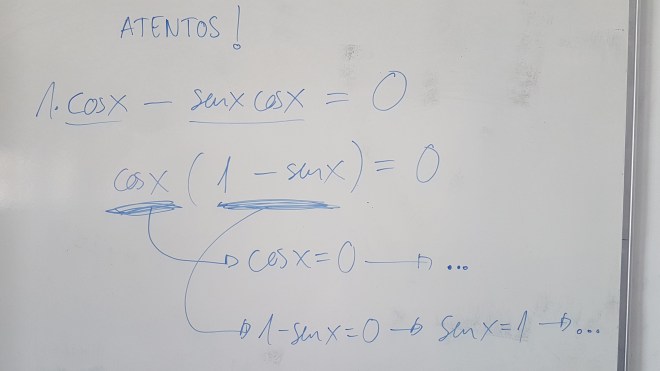 ATENTOS!
1. cosx - senx cosx = 0
cosx (1 - senx) = 0
→ cosx = 0 → ...
→ 1 - senx = 0 → senx = 1 → ...